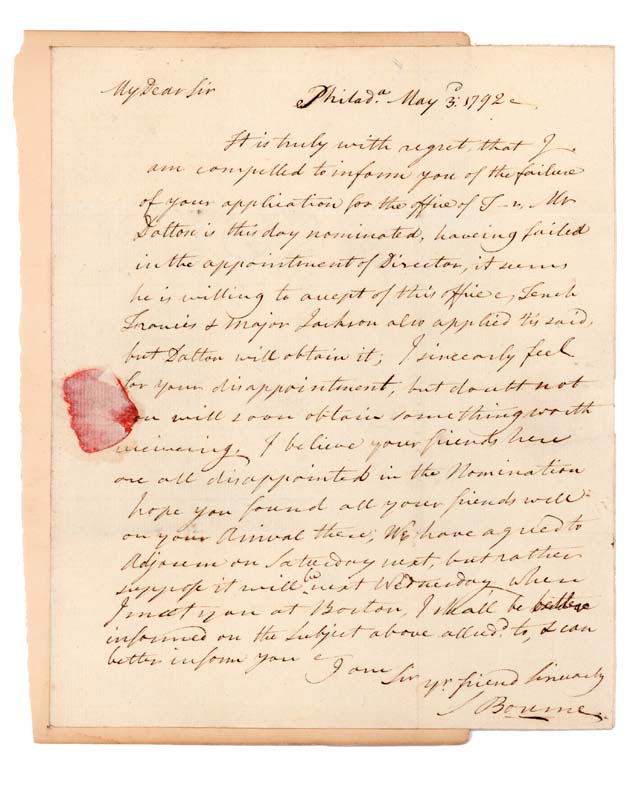 My Dear Sir Philad.a May 3.d 1792
It is truly with regret that I
am compelled to inform you of the failure
of your application for the office of T—r, Mr
Dalton is this day nominated, haveing failed
in the appointment of Director, it seems
he is willing to accept of this office, Tench
Francies & Major Jackson also applied 'tis said,
but Dalton will obtain it; I sincearly feel
for your disappointment, but doubt not
you will soon obtain something worth
receiveing. I believe your friends here
are all disappointed in the Nomination
hope you found all your friends well
on your Arrival there; We have agreed to
Adjourn on Saturday next, but rather
suppose it will be next Wednesday, when
I meet you at Boston, I shall be
informed on the subject above allud.d to, & can
better inform you
I am Sir yr. friend Sincearly
S Bourne